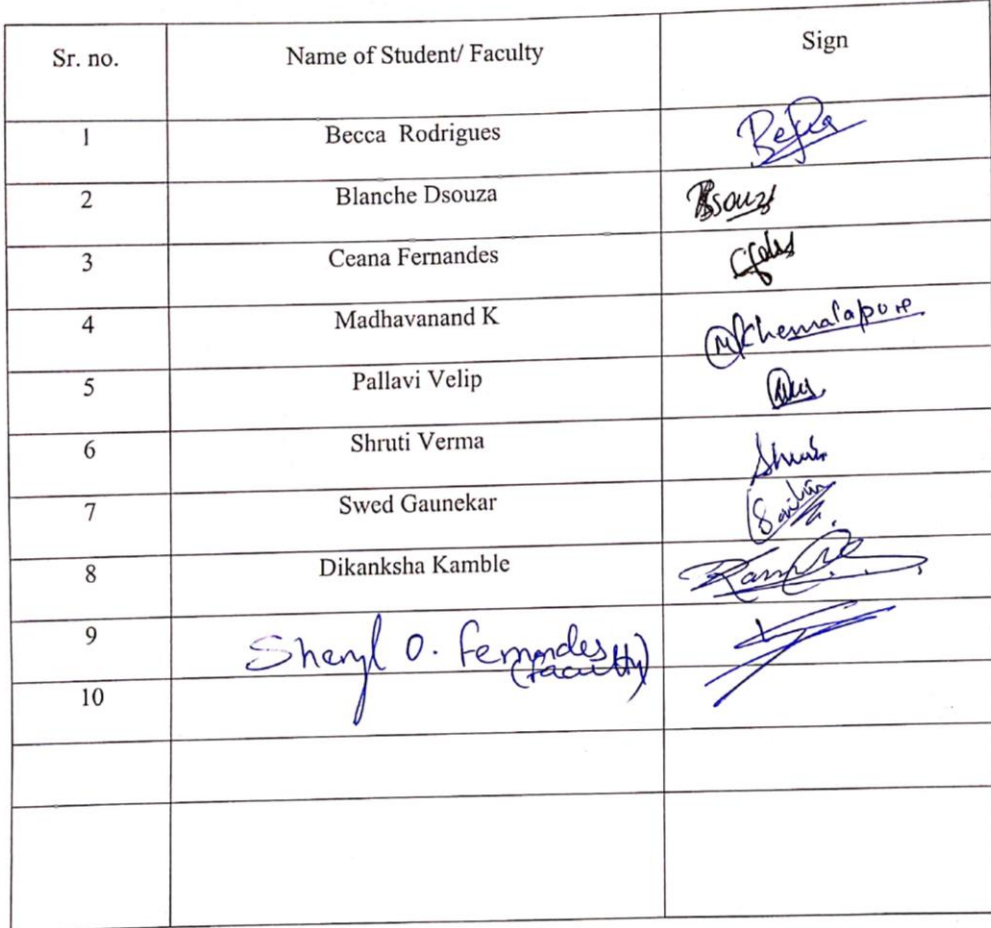 Sr. no. Name of Student/ Faculty Sign
1 Becca Rodrigues
2 Blanche Dsouza
3 Ceana Fernandes
4 Madhavanand K Khemalapure
5 Pallavi Velip
6 Shruti Verma
7 Swed Gaunekar
8 Dikanksha Kamble
9 Sheryl O. Fernandes
(Faculty)
10